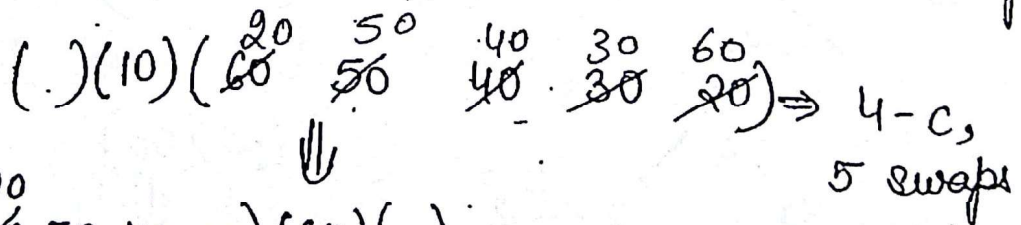 20 50 40 30 60
(.)(10)(60 50 40 30 20) ⇒ 4-c,
⇓ 5 swaps